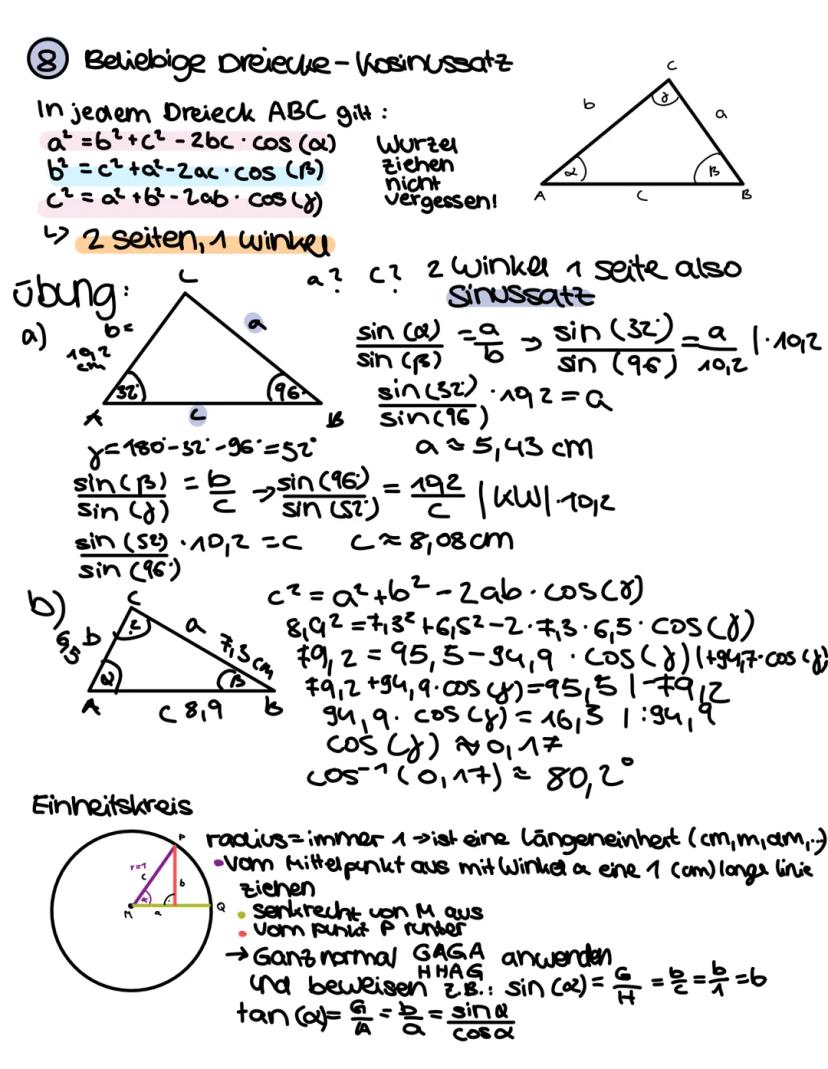 8 Beliebige Dreiecke - Kosinussatz
In jedem Dreieck ABC gilt:
a² = b² + c² - 2bc · cos (α)
b² = c² + a² - 2ac · cos (β)
c² = a² + b² - 2ab · cos (γ)
Wurzel
ziehen
nicht
vergessen!
↳ 2 seiten, 1 winkel
C
b
γ
a
α
β
A
c
B
Übung:
a? c? 2 Winkel 1 seite also
sinussatz
a)
C
b=
10,2
cm
a
32°
96°
A
c
B
sin (α)/sin (β) = a/b → sin (32°)/sin (96) = a/10,2 | · 10,2
sin (32°)/sin (96) · 10,2 = a
γ = 180° - 32° - 96° = 52°
a ≈ 5,43 cm
sin (β)/sin (γ) = b/c → sin (96°)/sin (52°) = 10,2/c | KW | · 10,2
sin (52)/sin (96°) · 10,2 = c
c ≈ 8,08 cm
b)
C
6,5
b
a
7,3 cm
α
β
A
c 8,9
B
c² = a² + b² - 2ab · cos (γ)
8,9² = 7,3² + 6,5² - 2 · 7,3 · 6,5 · cos (γ)
79,2 = 95,5 - 94,9 · cos (γ) | + 94,7 · cos (γ)
79,2 + 94,9 · cos (γ) = 95,5 | - 79,2
94,9 · cos (γ) = 16,3 | : 94,9
cos (γ) ≈ 0,17
cos⁻¹ (0,17) ≈ 80,2°
Einheitskreis
P
r=1
c
b
α
M
a
Q
radius = immer 1 → ist eine Längeneinheit (cm, m, dm, ..)
• Vom Mittelpunkt aus mit Winkel α eine 1 (cm) lange linie
ziehen
• senkrecht von M aus
• vom punkt P runter
→ Ganz normal GAGA anwenden
HHAG
und beweisen z.B.: sin (α) = G/H = b/c = b/1 = b
tan (α) = G/A = b/a = sin α/cos α